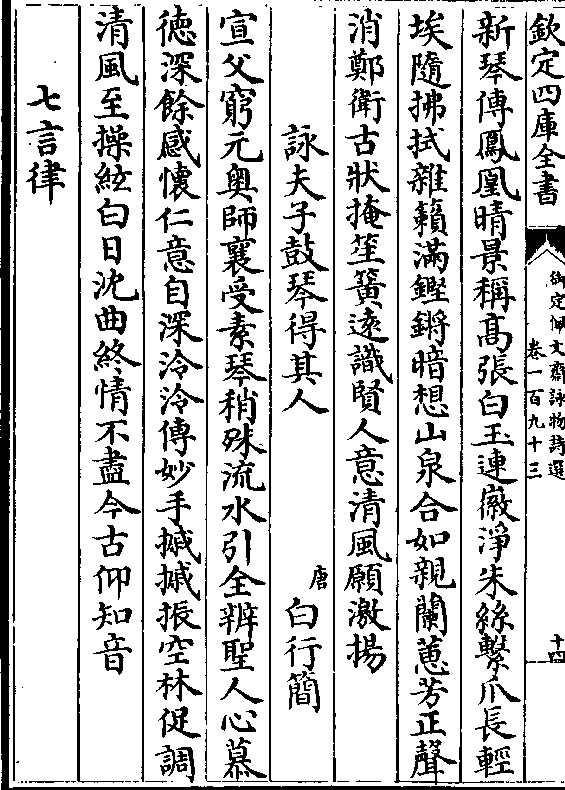 欽定四庫全書
御定佩文齋詠物詩選
卷一百九十三
十四
新琴傳鳳凰晴景稱髙張白玉連徽淨朱絲繫爪長輕
埃隨拂拭雜籟滿鏗鏘暗想山泉合如親蘭蕙芳正聲
消鄭衛古狀掩笙簧遠識賢人意清風願激揚
詠夫子鼓琴得其人
唐
白行簡
宣父窮元奥師襄受素琴稍殊流水引全辨聖人心慕
徳深餘感懐仁意自深泠泠傳妙手摵摵振空林促調
清風至操絃白日沈曲終情不盡今古仰知音
七言律